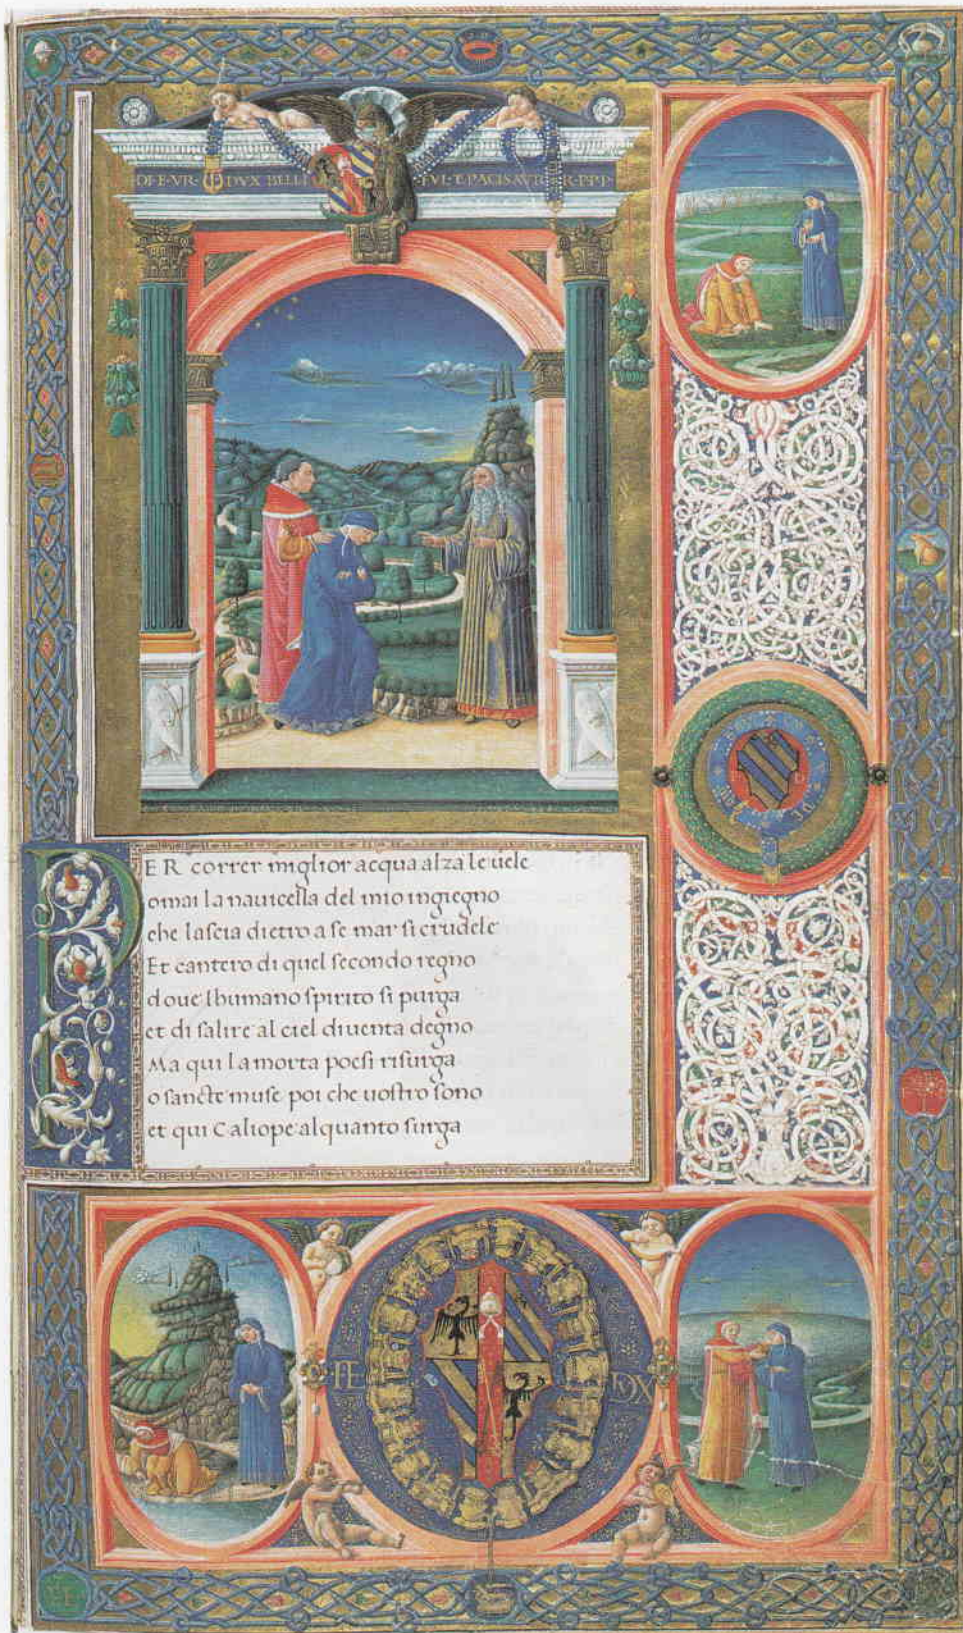 DVX BELLI
PACIS
PER correr miglior acqua alza le uele
omai la nauicella del mio ingiegno
che lascia dietro a se mar si crudele
Et cantero di quel secondo regno
doue lhumano spirito si purga
et di salire al ciel diuenta degno
Ma qui la morta poesi risurga
o sancte muse poi che uostro sono
et qui Caliope alquanto surga
FE DVX